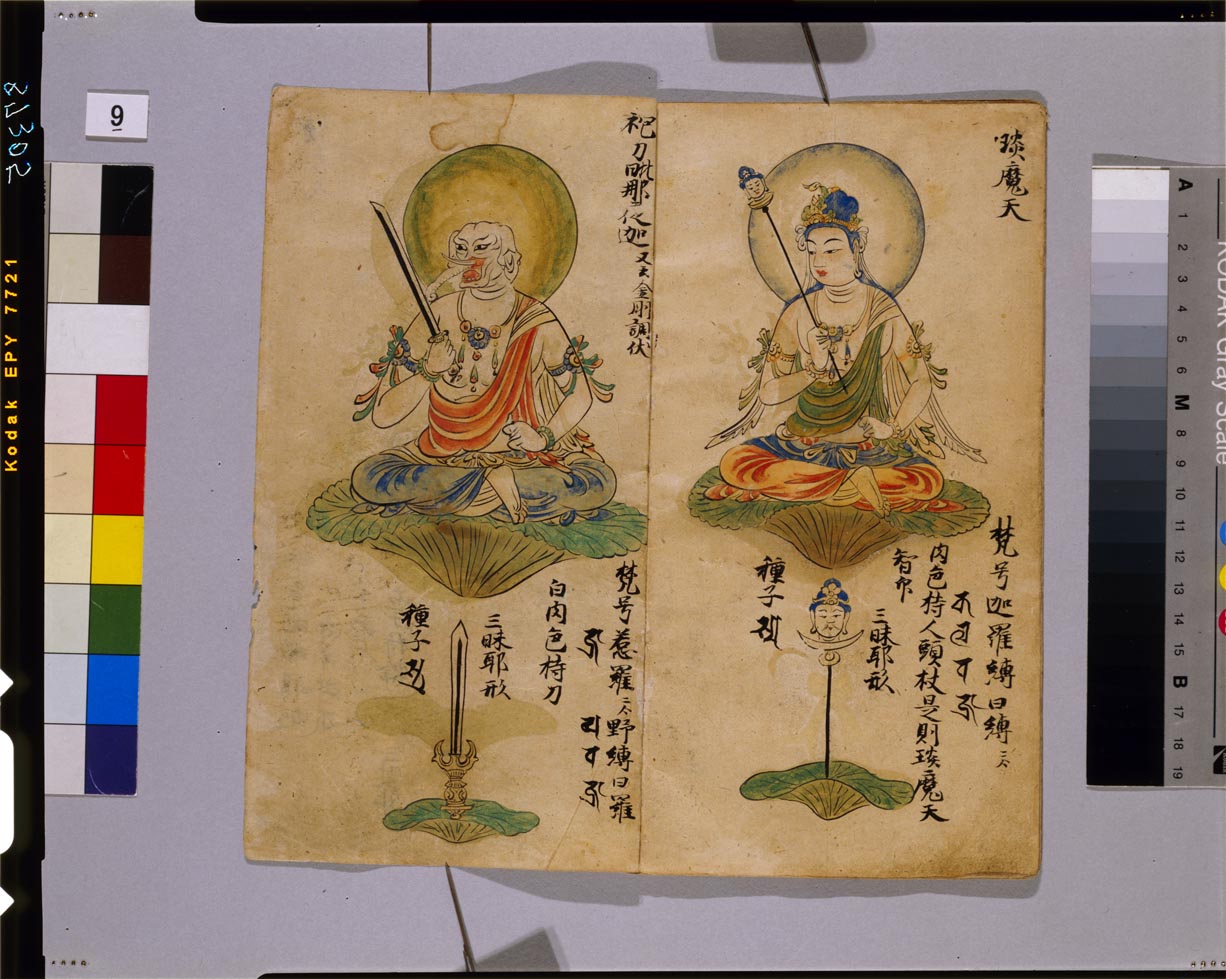 琰魔天
梵号迦羅縛曰縛二合
肉色持人頭杖是則琰魔天
智印
三昧耶形
種子
祀刀毗那夜迦又云金剛調伏
梵号惹羅二合野縛曰羅
白肉色持刀
三昧耶形
種子
9
Kodak EPY 7721
KODAK Gray Scale
A 1 2 3 4 5 6 M 8 9 10 11 12 13 14 15 B 17 18 19